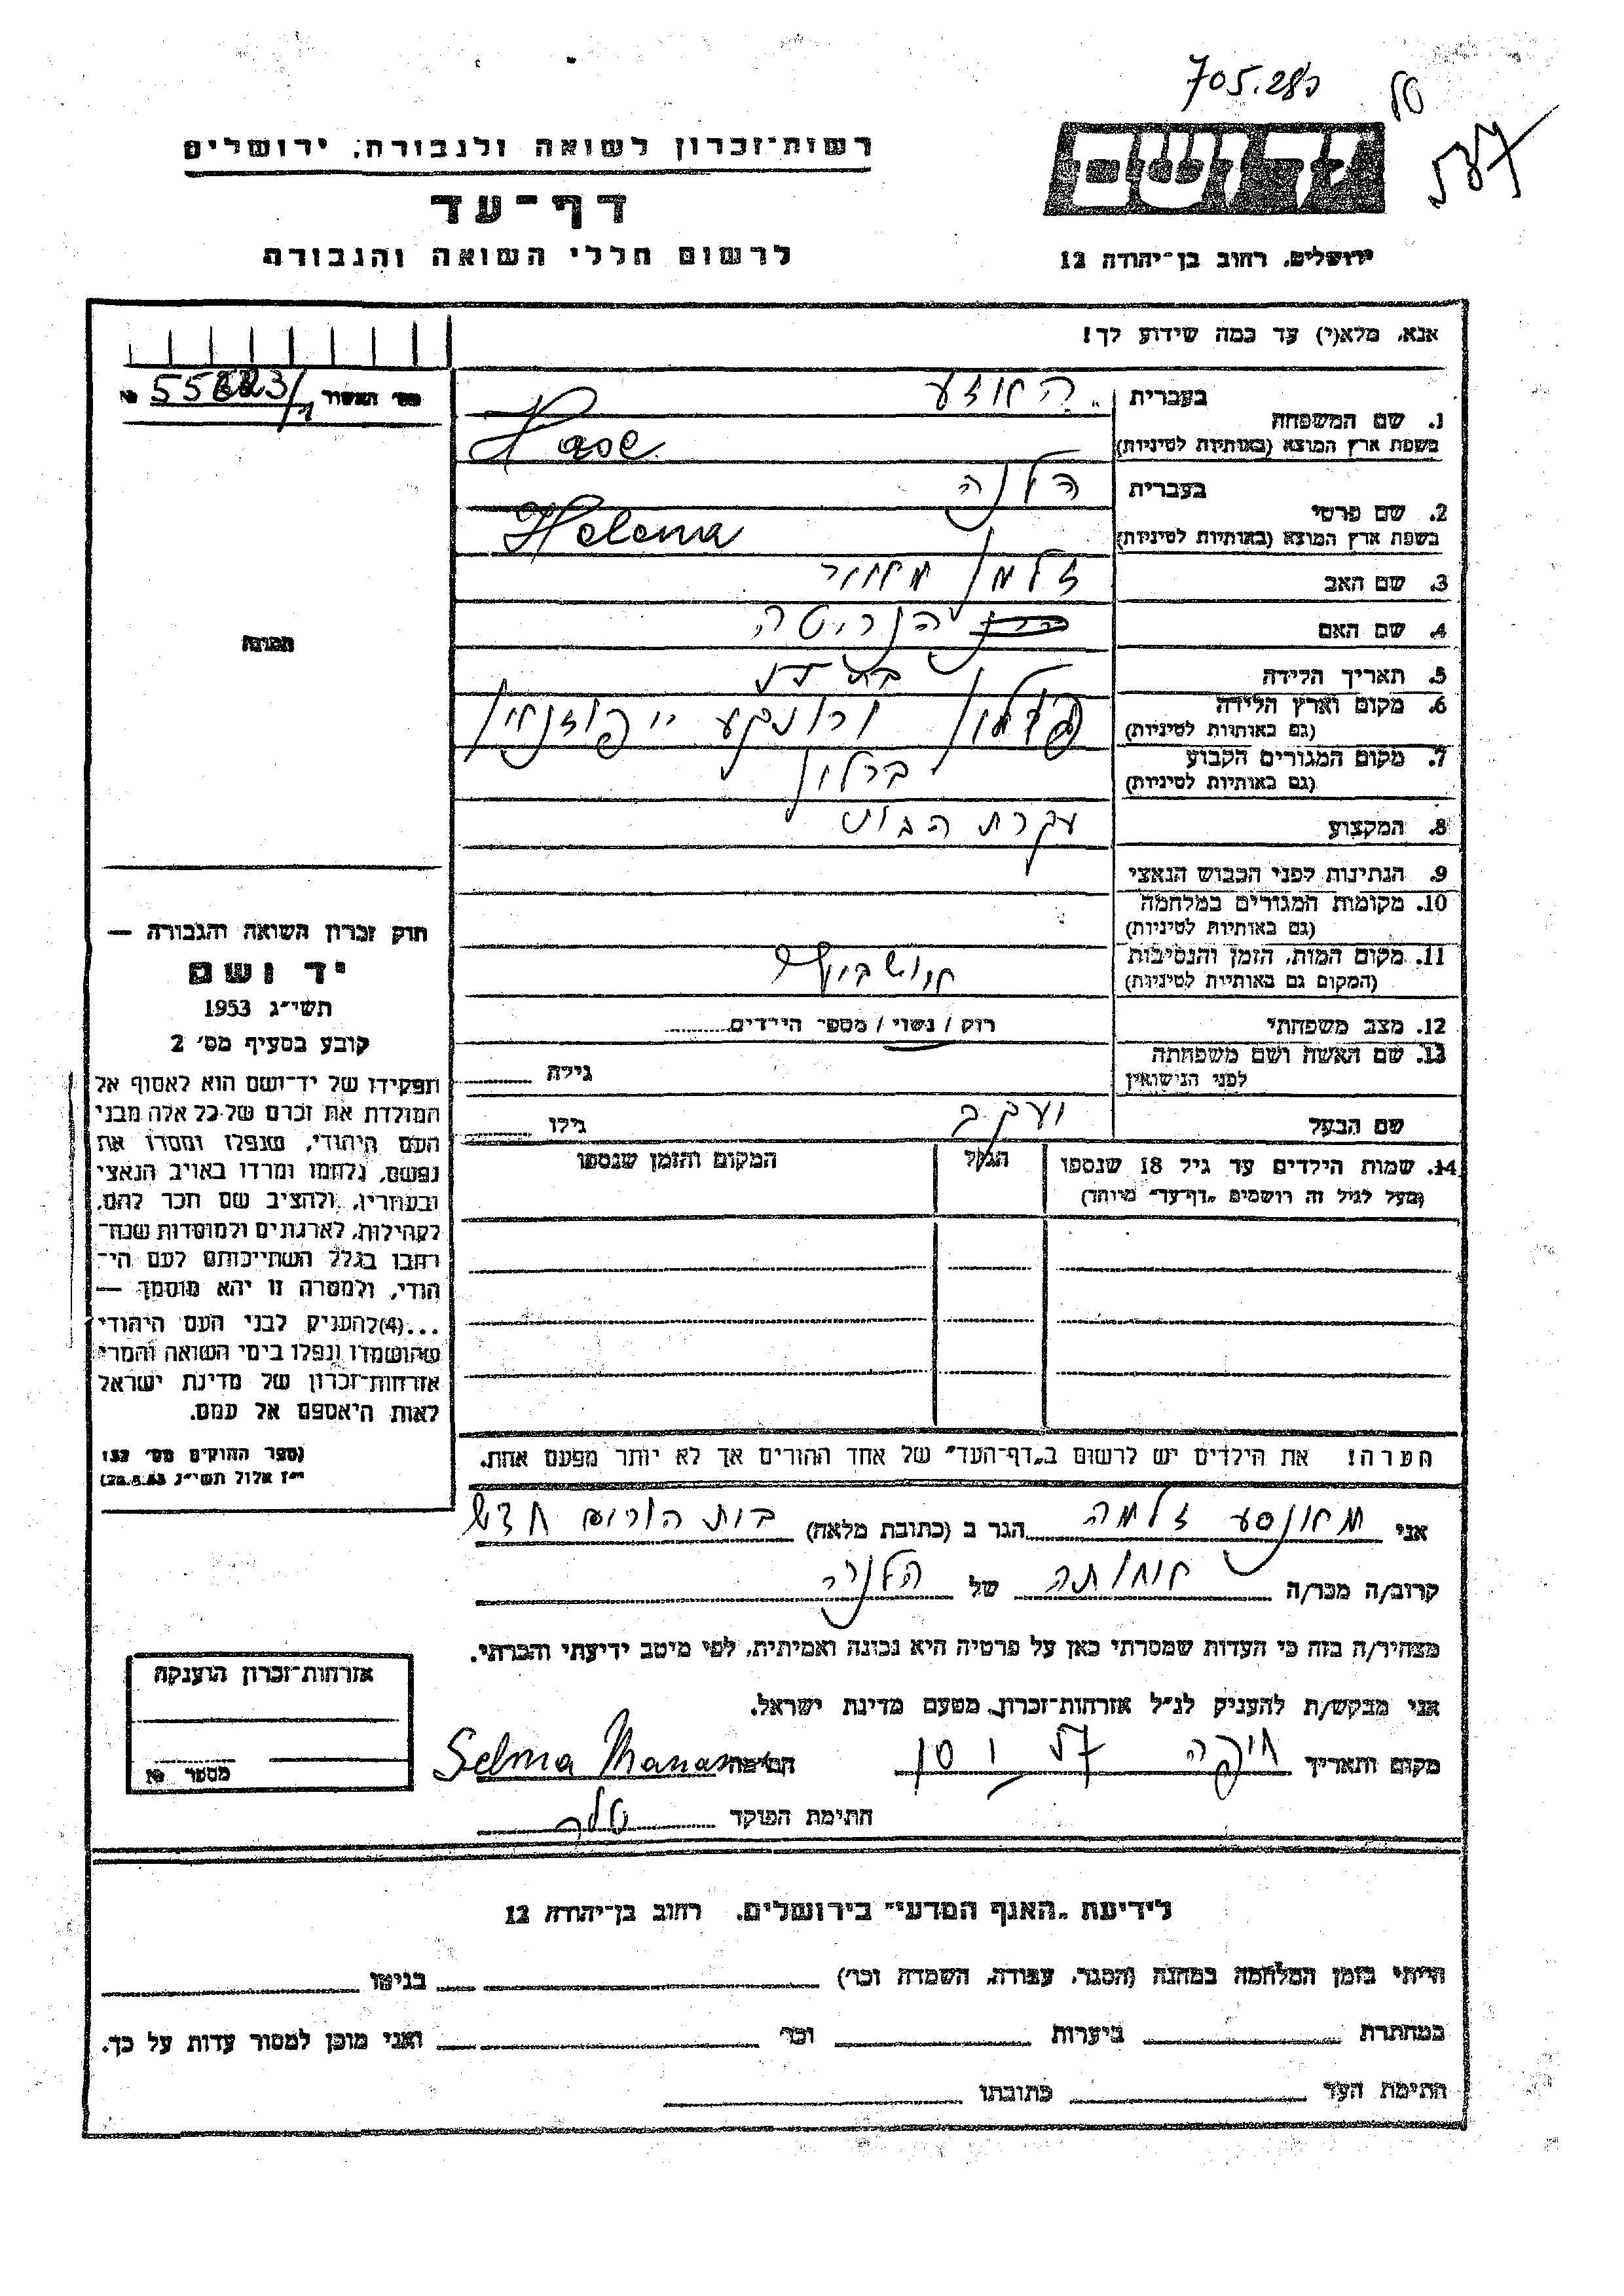 705.283
רשות־זכרון לשואה ולגבורה, ירושלים
דף־עד
לרשום חללי השואה והגבורה
ירושלים, רחוב בן־יהודה 12
אנא, מלא(י) עד כמה שידוע לך!
מס' האשור №
1. שם המשפחה
בעברית
בשפת ארץ המוצא (באותיות לטיניות)
Hase
2. שם פרטי
בעברית הלנה
בשפת ארץ המוצא (באותיות לטיניות) Helena
3. שם האב זלמן
4. שם האם הנריטה
5. תאריך הלידה
6. מקום וארץ הלידה
(גם באותיות לטיניות)
7. מקום המגורים הקבוע ברלין
(גם באותיות לטיניות)
8. המקצוע עקרת הבית
9. הנתינות לפני הכבוש הנאצי
10. מקומות המגורים במלחמה
(גם באותיות לטיניות)
11. מקום המות, הזמן והנסיבות
(המקום גם באותיות לטיניות)
12. מצב משפחתי רוק / נשוי / מספר הילדים
13. שם האשה ושם משפחתה גילה
לפני הנישואין
שם הבעל יעקב גילו
14. שמות הילדים עד גיל 18 שנספו הגיל המקום והזמן שנספו
(מעל לגיל זה רושמים "דף־עד" מיוחד)
תמונה
חוק זכרון השואה והגבורה —
יד ושם
תשי"ג 1953
קובע בסעיף מס' 2
תפקידו של יד־ושם הוא לאסוף אל
המולדת את זכרם של כל אלה מבני
העם היהודי, שנפלו ומסרו את
נפשם, נלחמו ומרדו באויב הנאצי
ובעוזריו, ולהציב שם וזכר להם,
לקהילות, לארגונים ולמוסדות שנח־
רבו בגלל השתייכותם לעם הי־
הודי, ולמטרה זו יהא מוסמך —
...(4) להעניק לבני העם היהודי
שהושמדו ונפלו בימי השואה והמרי
אזרחות־זכרון של מדינת ישראל
לאות היאספם אל עמם.
(ספר החוקים מס' 132
י"ז אלול תשי"ג 28.8.53)
הערה! את הילדים יש לרשום ב"דף־העד" של אחד ההורים אך לא יותר מפעם אחת.
אני זלמה הגר ב (כתובת מלאה) בית הורים חדש
קרוב/ה מכר/ה של הלנה
מצהיר/ה בזה כי העדות שמסרתי כאן על פרטיה היא נכונה ואמיתית, לפי מיטב ידיעתי והכרתי.
אני מבקש/ת להעניק לנ"ל אזרחות־זכרון מטעם מדינת ישראל.
מקום ותאריך חיפה חתימה Selma
חתימת הפוקד
אזרחות־זכרון הוענקה
מספר №
לידיעת "האגף המדעי" בירושלים, רחוב בן־יהודה 12
הייתי בזמן המלחמה במחנה (הסגר, עבודה, השמדה וכו') בגיטו
במחתרת ביערות וכו' ואני מוכן למסור עדות על כך.
חתימת העד כתובתו